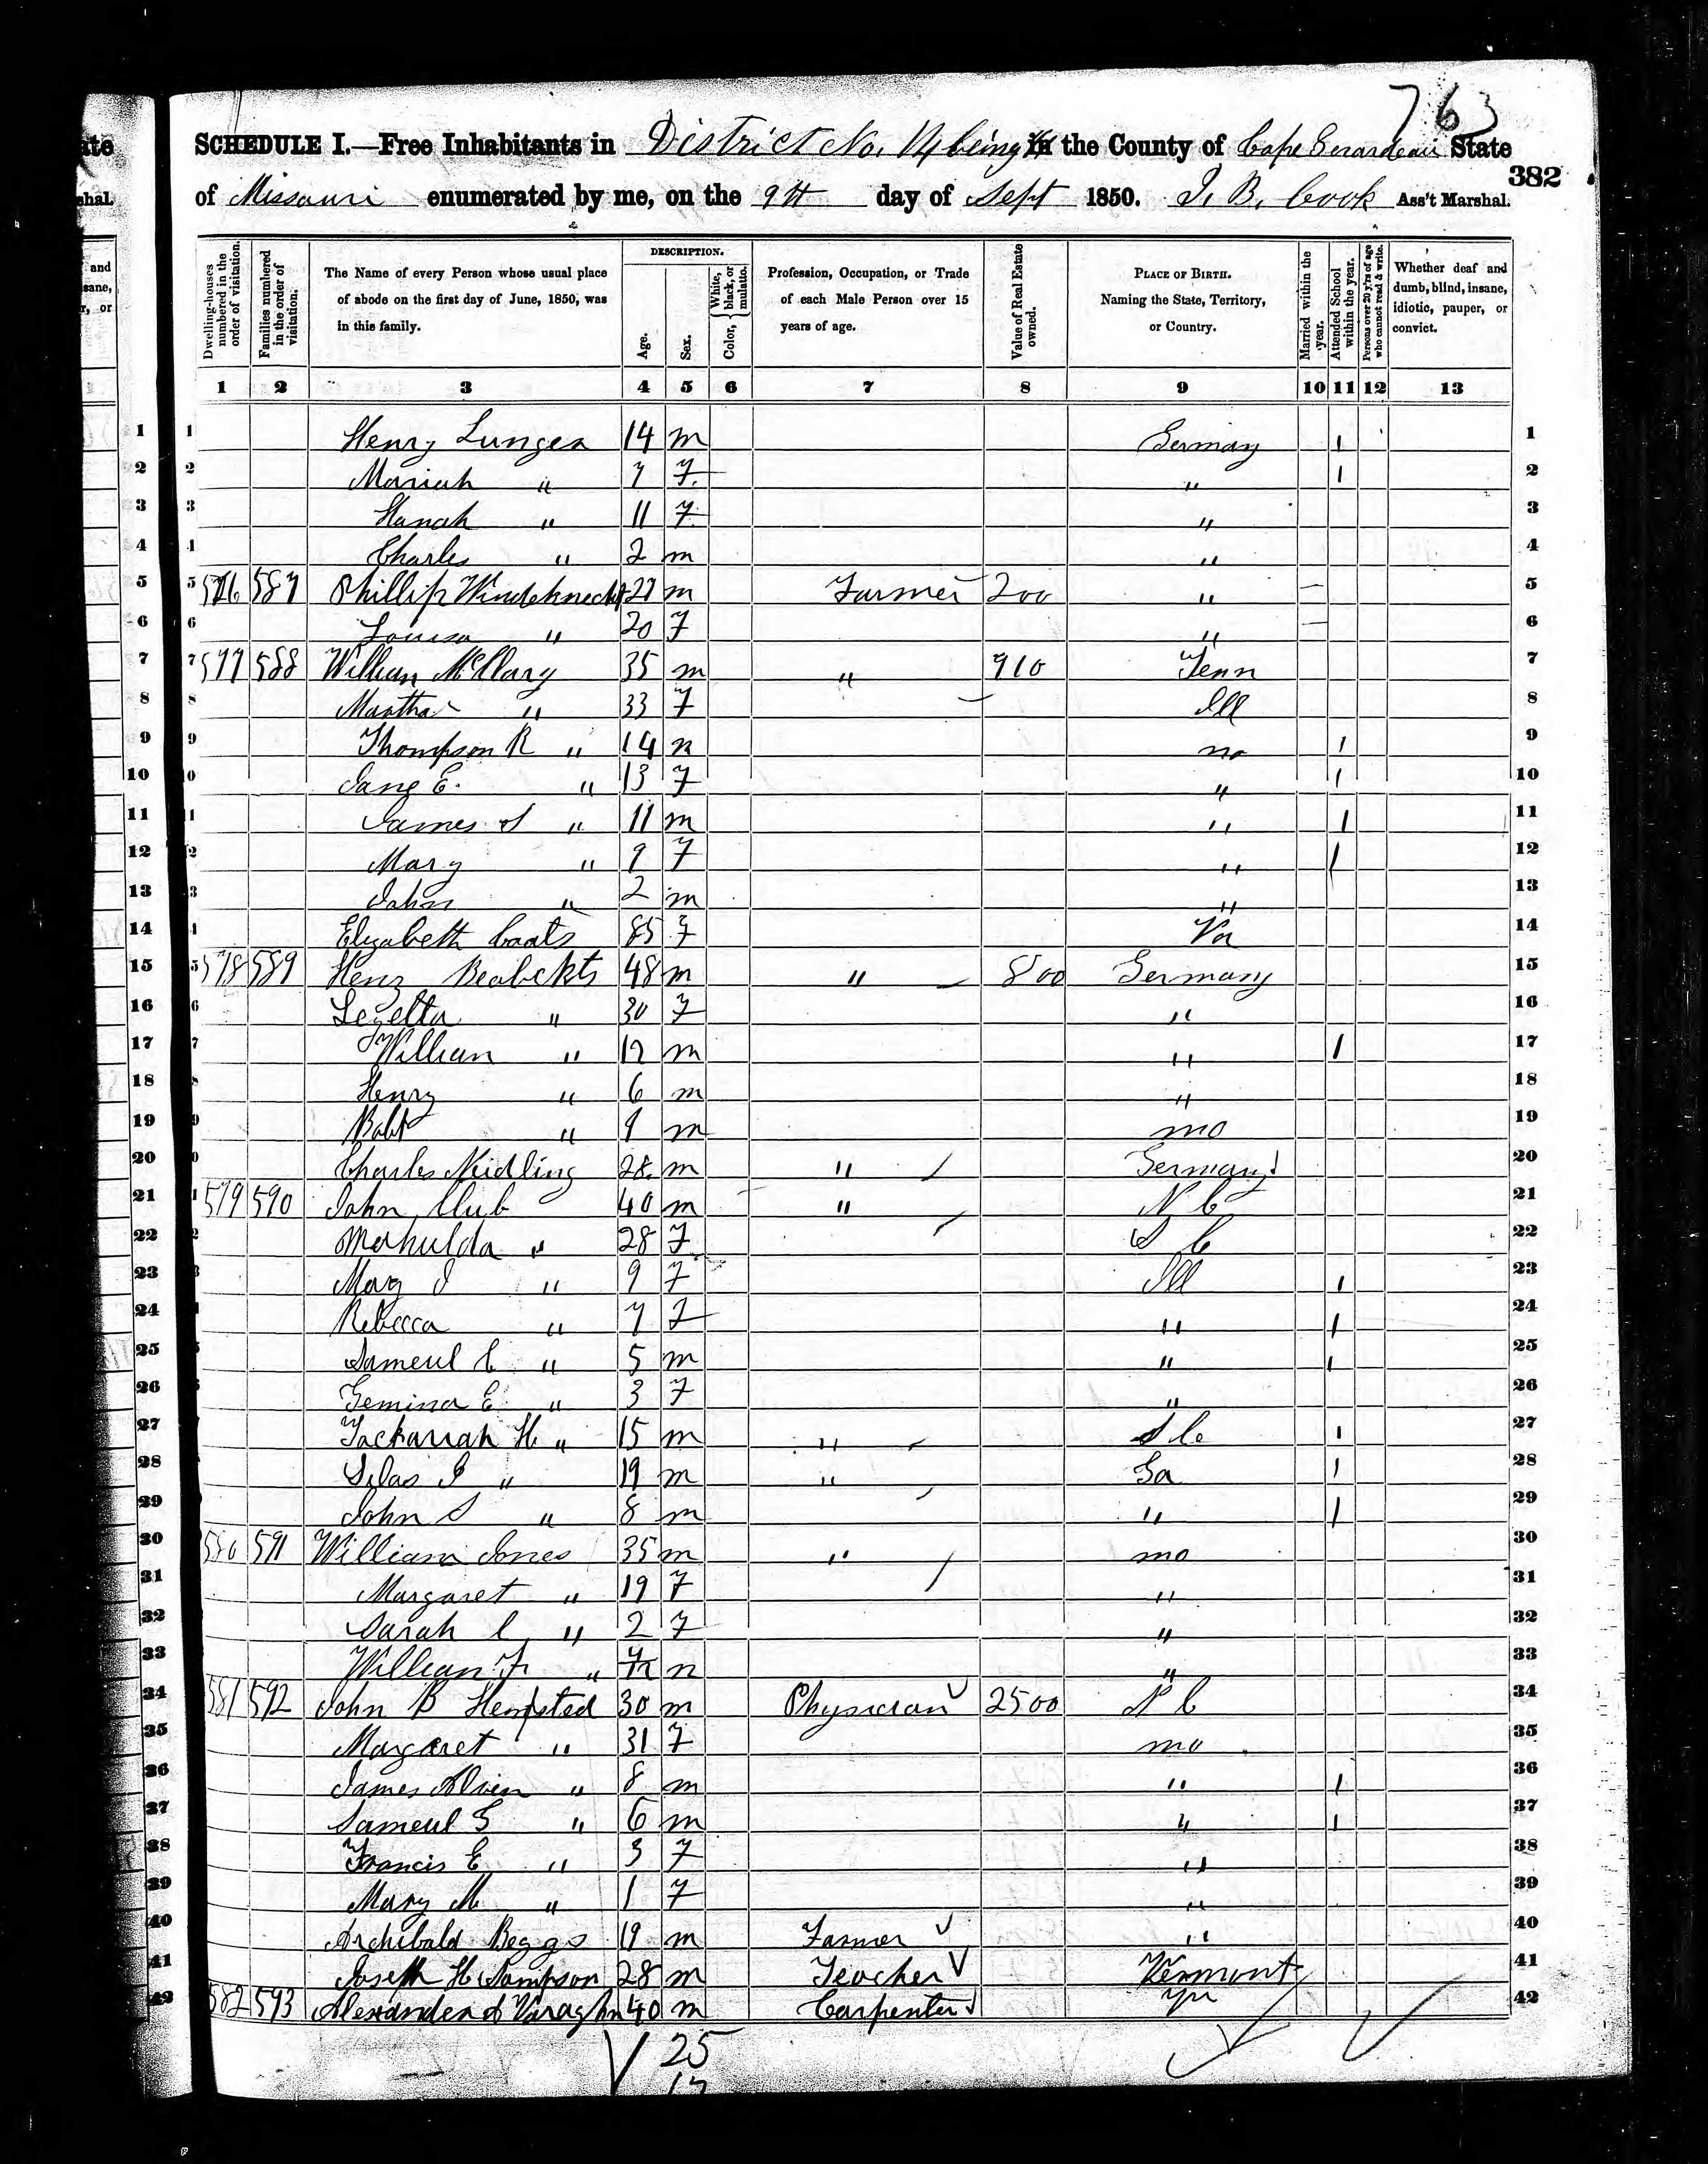 763
SCHEDULE I.—Free Inhabitants in District No. 14 being in the County of Cape Girardeau State
382
of Missouri enumerated by me, on the 9th day of Sept 1850. J. B. Cook Ass't Marshal.
Dwelling-houses numbered in the order of visitation.
Families numbered in the order of visitation.
The Name of every Person whose usual place of abode on the first day of June, 1850, was in this family.
DESCRIPTION.
Age.
Sex.
Color, White, black, or mulatto.
Profession, Occupation, or Trade of each Male Person over 15 years of age.
Value of Real Estate owned.
PLACE OF BIRTH. Naming the State, Territory, or Country.
Married within the year.
Attended School within the year.
Persons over 20 y'rs of age who cannot read & write.
Whether deaf and dumb, blind, insane, idiotic, pauper, or convict.
1 2 3 4 5 6 7 8 9 10 11 12 13
1 Henry Lunger 14 m Germany 1 1
2 Mariah " 7 F " 1 2
3 Hanah " 11 F " 3
4 Charles " 2 m " 4
5 576 587 Phillip Windeknecht 27 m Farmer 200 " — 5
6 Louisa " 20 F " — 6
7 577 588 William McClary 35 m " 910 Tenn 7
8 Martha " 33 F Ill 8
9 Thompson R " 14 m mo 1 9
10 Jane E. " 13 F " 1 10
11 James S " 11 m " 1 11
12 Mary " 9 F " 1 12
13 John " 2 m " 13
14 Elizabeth Coats 85 F Va 14
15 578 589 Henz Beabckts 48 m " 800 Germany 15
16 Lezetta " 30 F " 16
17 William " 12 m " 1 17
18 Henry " 6 m " 18
19 Robt " 9 m mo 19
20 Charles Neidling 28 m " Germany 20
21 579 590 John Club 40 m " N C 21
22 Mahulda " 28 F S C 22
23 Mary J " 9 F Ill 1 23
24 Rebecca " 7 F " 1 24
25 Sameul C " 5 m " 1 25
26 Gemima E " 3 F " 26
27 Zackariah H " 15 m " S C 1 27
28 Silas J " 19 m " Ga 1 28
29 John S " 8 m " 1 29
30 580 591 William Jones 35 m " mo 30
31 Margaret " 19 F " 31
32 Sarah C " 2 F " 32
33 William F " m " 33
34 581 592 John B Hempsted 30 m Physician 2500 N C 34
35 Margaret " 31 F mo 35
36 James Alvin " 8 m " 1 36
37 Sameul G " 6 m " 1 37
38 Francis E " 3 F " 38
39 Mary M " 1 F " 39
40 Archibald Beggs 19 m Farmer " 40
41 Joseph H Sampson 28 m Teacher Vermont 41
42 582 593 Alexander S Varaghn 40 m Carpenter 42
25
17